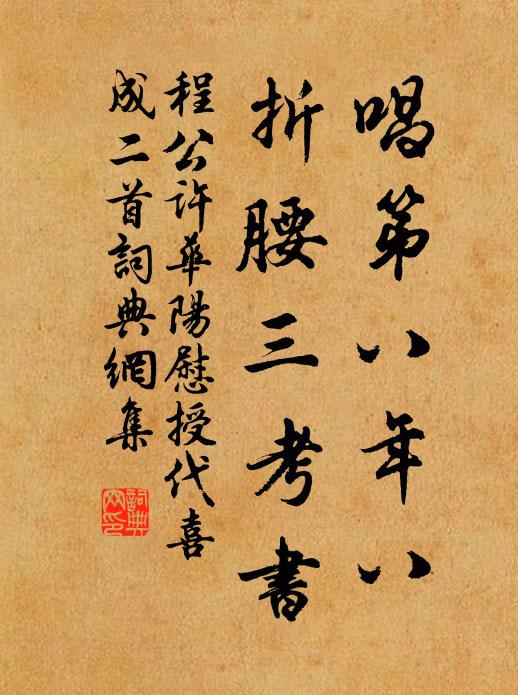 唱第八年八
折腰三考書
程公許華陽慰授代喜
成二首詞典網集
詞典网印